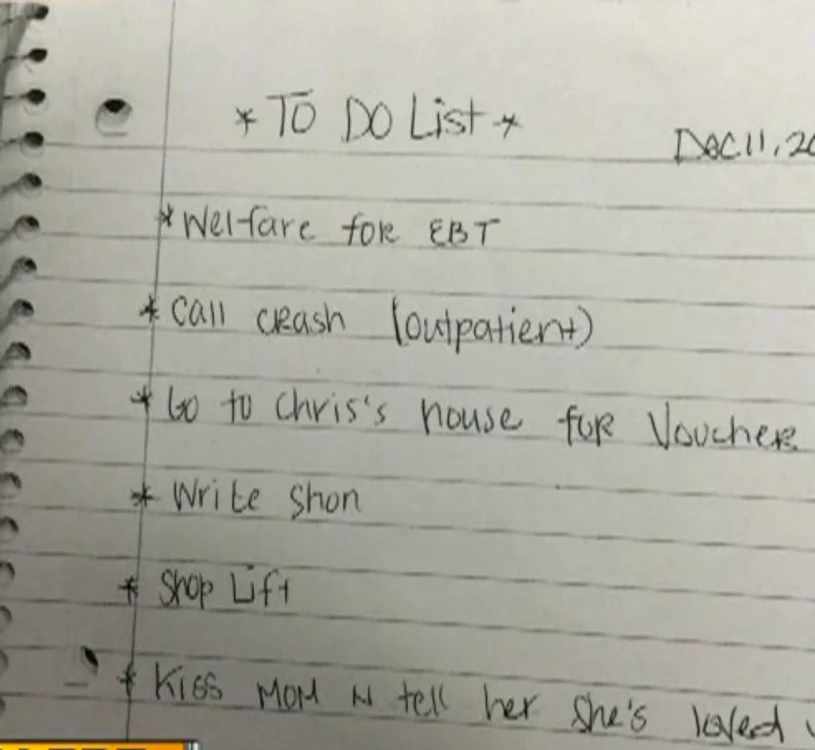 * TO DO List *
Dec 11, 20
* Welfare for EBT
* call crash (outpatient)
* Go to Chris's house for Voucher
* Write Shon
* Shop Lift
* Kiss MOM N tell her She's loved